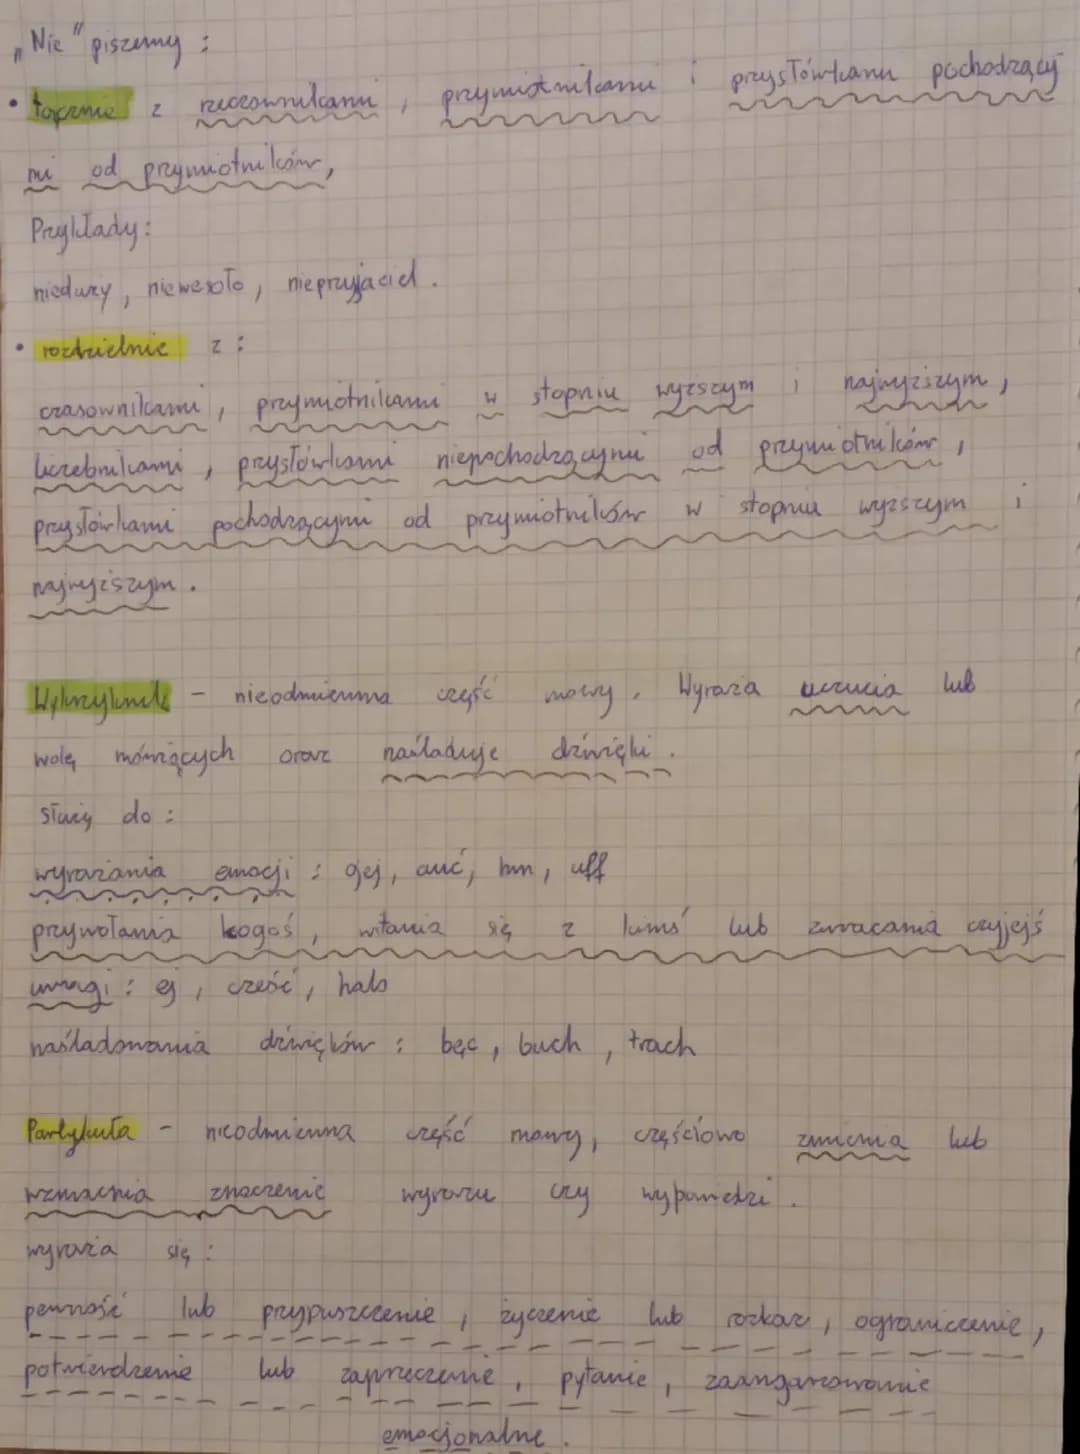 „Nie" piszemy :
• łącznie z rzeczownikami , przymiotnikami i przysłówkami pochodzący
mi od przymiotników,
Przykłady:
nieduży , niewesoło , nieprzyjaciel .
• rozdzielnie z :
czasownikami , przymiotnikami w stopniu wyższym i najwyższym ,
liczebnikami , przysłówkami niepochodzącymi od przymiotników ,
przysłówkami pochodzącymi od przymiotników w stopniu wyższym i
najwyższym .
Wykrzyknik - nieodmienna część mowy . Wyraża uczucia lub
wolę mówiących oraz naśladuje dźwięki .
służy do :
wyrażania emocji : ojej , auć , hm , uff
przywołania kogoś , witania się z kimś lub zwracania czyjejś
uwagi : ej , cześć , halo
naśladowania dźwięków : bęc , buch , trach
Partykuła - nieodmienna część mowy , częściowo zmienia lub
wzmacnia znaczenie wyrazu czy wypowiedzi .
wyraża się :
pewność lub przypuszczenie , życzenie lub rozkaz , ograniczenie ,
potwierdzenie lub zaprzeczenie , pytanie , zaangażowanie
emocjonalne .